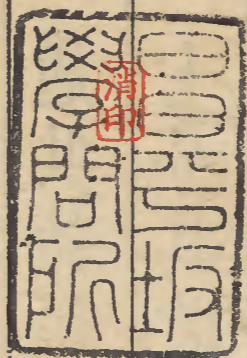 昌平坂
學問所
消印